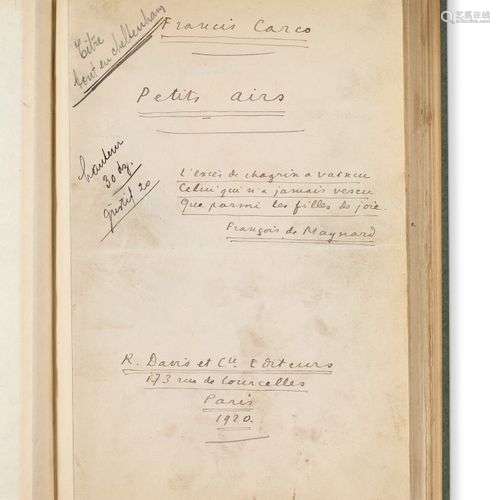 Titre
tout en cheltenham
Francis Carco
Petits airs
hauteur
30 dz.
justif 20
L'excès de chagrin a vaincu
Celui qui n'a jamais vescu
Que parmi les filles de joie
François de Maynard
R. Davis et Cie Editeurs
173 rue de Courcelles
Paris
1920.